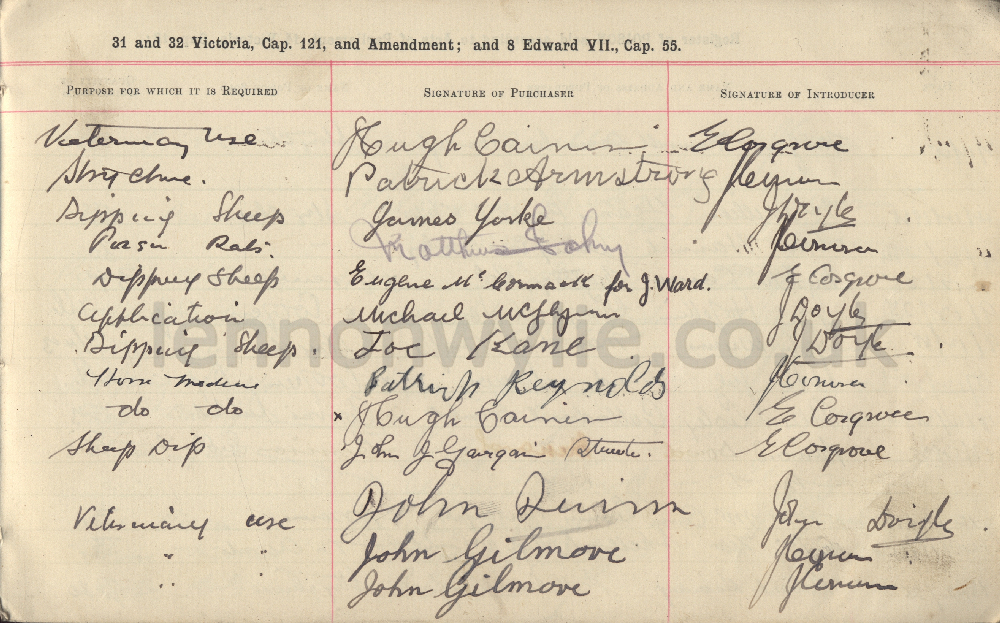 31 and 32 Victoria, Cap. 121, and Amendment; and 8 Edward VII., Cap. 55.
PURPOSE FOR WHICH IT IS REQUIRED SIGNATURE OF PURCHASER SIGNATURE OF INTRODUCER
Veterinary Use Hugh Cairnin E Cosgrove
Strychnine. Patrick Armstrong
Dipping Sheep James Yorke J Doyle
Poison Rats. Matthew Fahy
Dipping Sheep Eugene McCormack for J. Ward. E Cosgrove
Application Michael McGlynn J Doyle
Dipping Sheep. Joe Kane J Doyle
Horse Medicine Patrick Reynolds
do do x Hugh Cairnin E Cosgrove
Sheep Dip John J Gargan E Cosgrove
Veterinary use John Quinn John Doyle
" " John Gilmore
" " John Gilmore
lennonwylie.co.uk